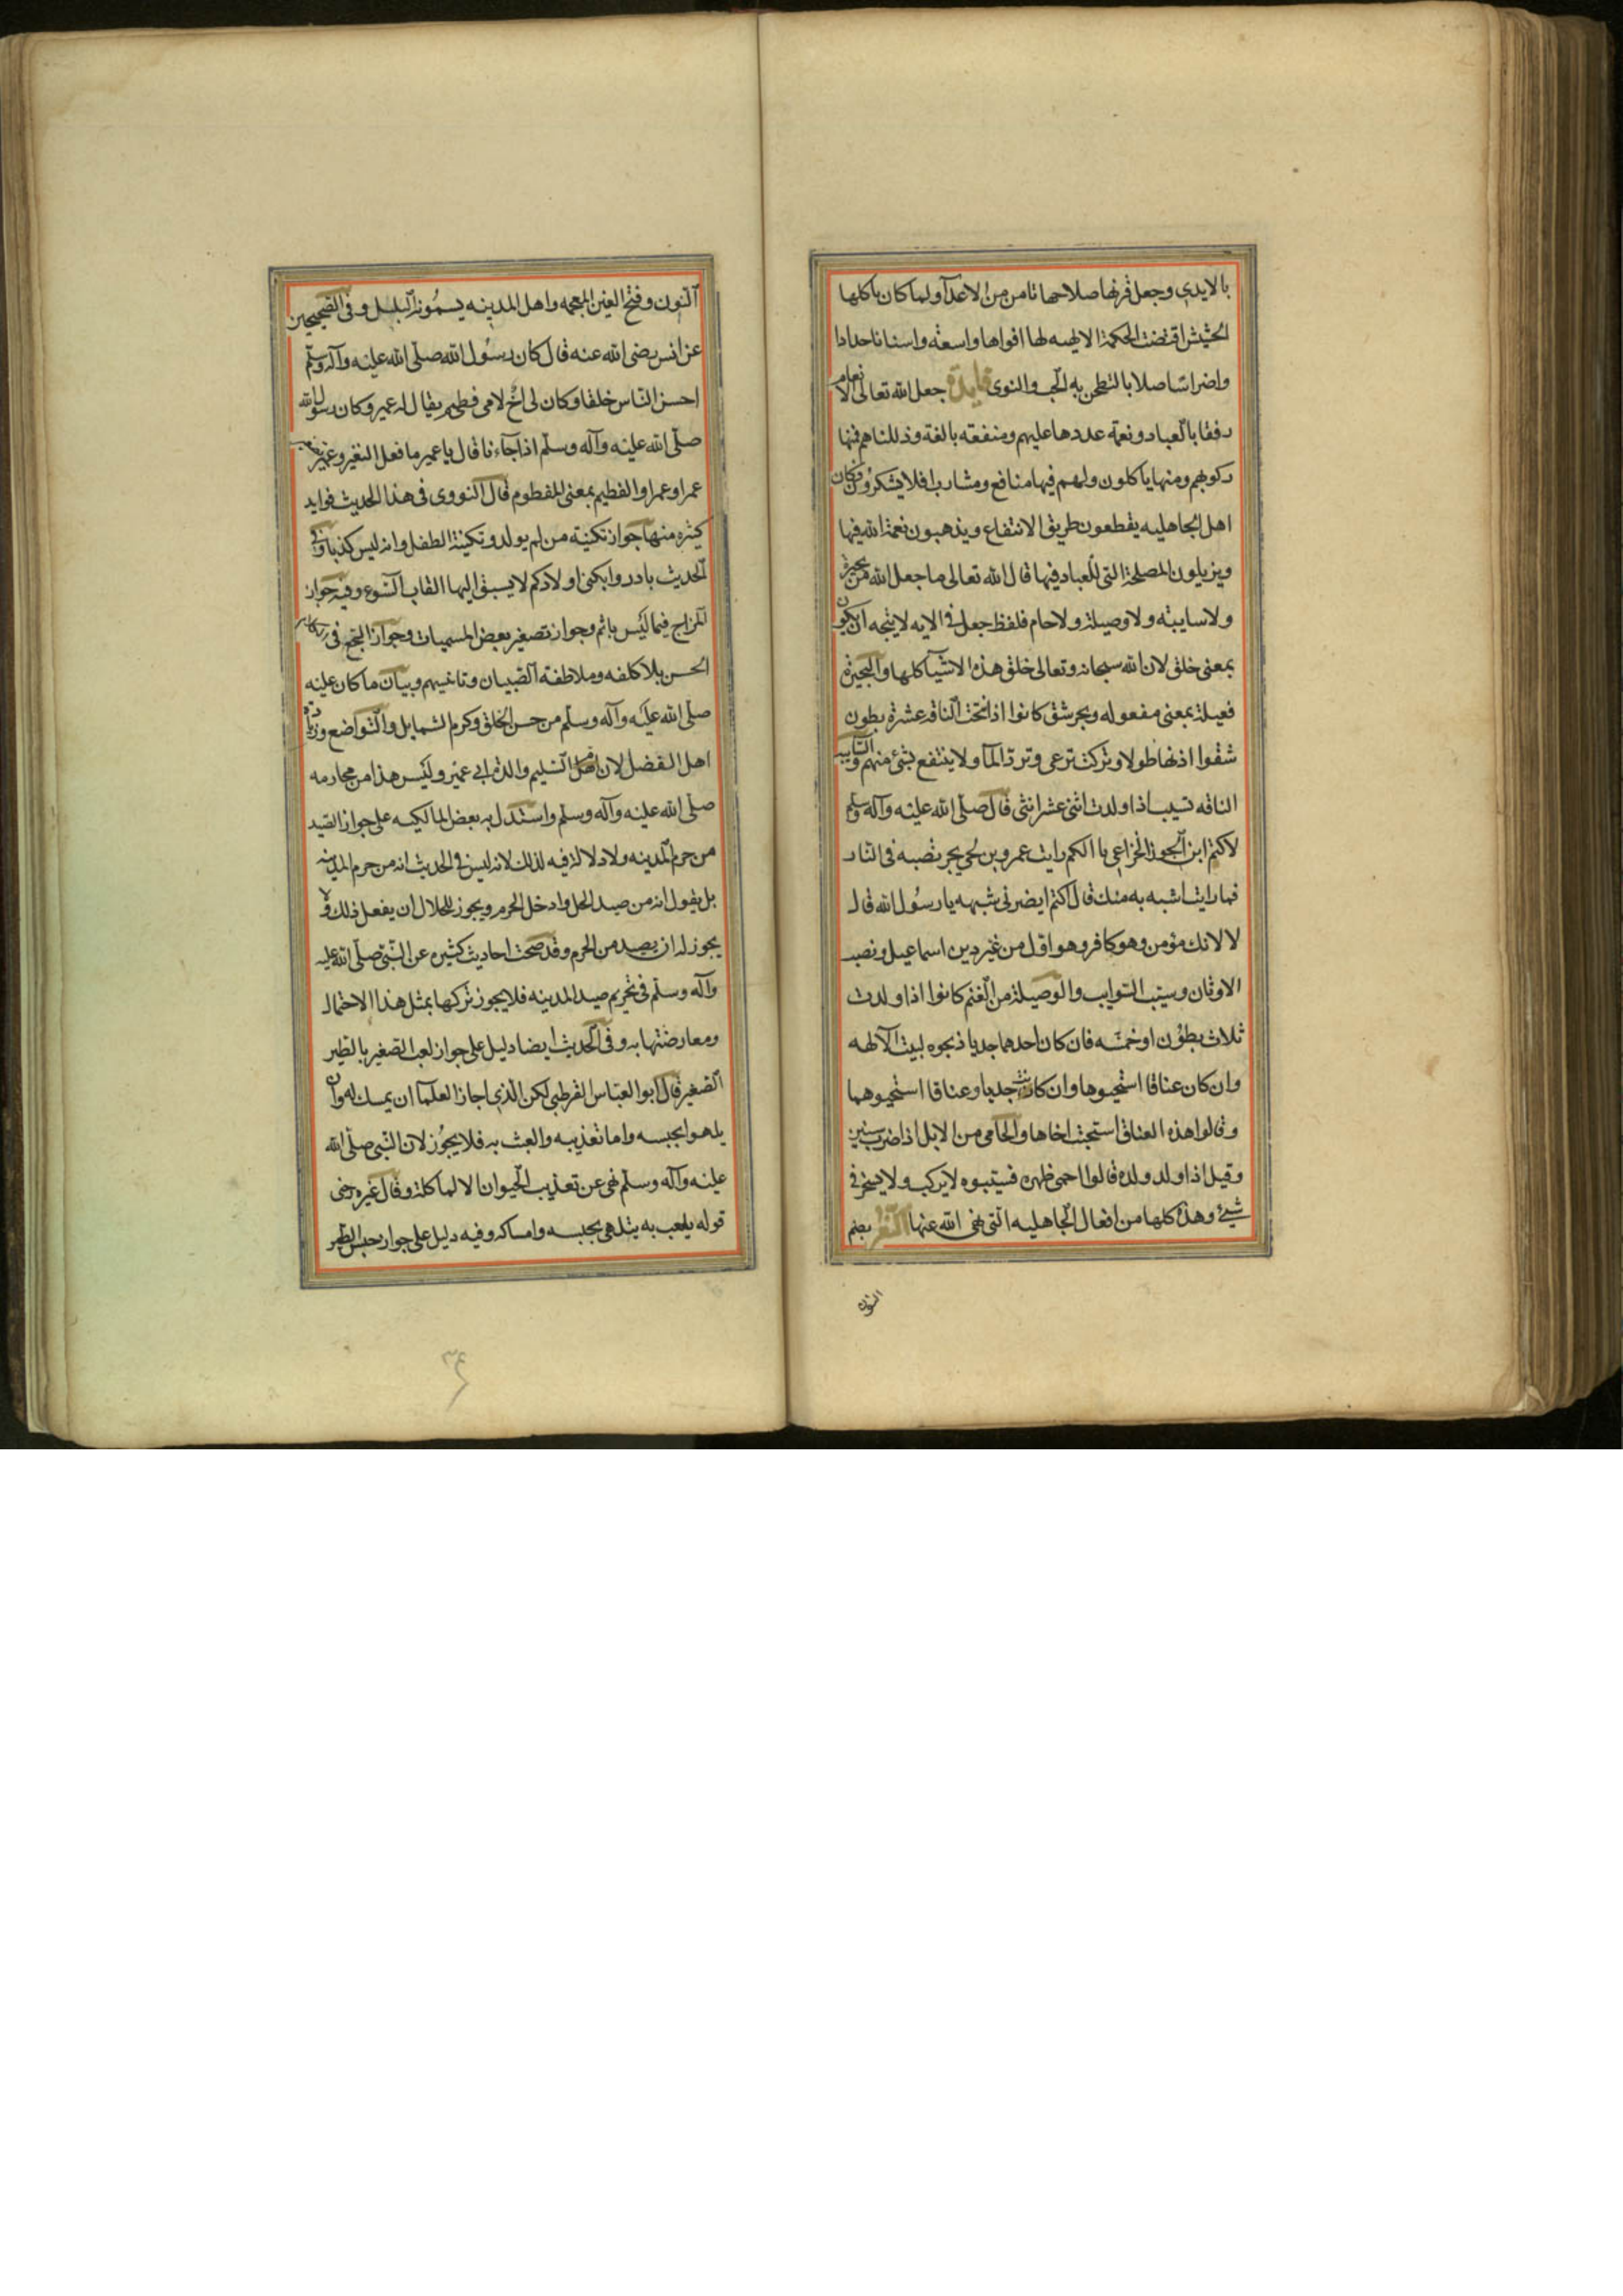 بالايدى وجعل قرنها صلاحها تامن من الاعدآ ولما كان ماكلها
الحشيش اقتضت الحكمة الالهيه لها افواها واسعة واسنانا حدادا
واضراسا صلابا لتطحن به الحب والنوى فايدة جعل الله تعالى الانعام
رفقا بالعباد ونعمة عددها عليهم ومنفعه بالغة وذللناهم فمنها
ركوبهم ومنها ياكلون ولهم فيها منافع ومشارب افلا يشكرون وكان
اهل الجاهليه يقطعون طريق الانتفاع ويذهبون نعمة الله فيها
ويزيلون المصلحة التى للعباد فيها قال الله تعالى ما جعل الله من بحيرة
ولا سايبة ولا وصيلة ولا حام فلفظ جعل فى الايه لا يتجه ان يكون
بمعنى خلق لان الله سبحانه وتعالى خلق هذه الاشيآ كلها والبحيرة
فعيلة بمعنى مفعوله وبحر شق كانوا اذا نتجت الناقه عشرة بطون
شقوا اذنها طولا وتركت ترعى وترد المآ ولا ينتفع بشئ منهم والسايبه
الناقه تسيب اذا ولدت اثنى عشر انثى قال صلى الله عليه وآله وسلم
لاكثم ابن الجون الخزاعى يا اكثم رايت عمرو بن لحى يجر نصبه فى النار
فما رايت اشبه به منك قال اكثم ايضرنى شبهه يا رسول الله قال
لا لانك مؤمن وهو كافر وهو اول من غير دين اسماعيل ونصب
الاوثان وسيب السوايب والوصيلة من الغنم كانوا اذا ولدت
ثلاث بطون او خمسه فان كان احدهما جديا ذبحوه لبيت الآلهه
وان كان عناقا استحيوها وان كانت جديا وعناقا استحيوهما
وقالوا هذه العناق استحبت اخاها والحامى من الابل اذا ضرب سنين
وقيل اذا ولد ولده قالوا احمى ظهره فسيبوه لا يركب ولا يسخر فى
شيئ وهذه كلها من افعال الجاهليه التى نهى الله عنها النغر بضم
النون
النون وفتح الغين المعجمه واهل المدينه يسمونه البلبل وفى الصحيحين
عن انس رضى الله عنه قال كان رسول الله صلى الله عليه وآله وسلم
احسن الناس خلقا وكان لى اخ لامى فطيم يقال له عمير وكان رسول الله
صلى الله عليه وآله وسلم اذا جآءنا قال يا عمير ما فعل النغير وعمير
عمر او عمرا والفطيم بمعنى المفطوم قال النووى فى هذا الحديث فوايد
كثيره منها جواز تكنية من لم يولد وتكنية الطفل وانه ليس كذبا وفى
الحديث بادروا بكنى اولادكم لا يسبق اليها القاب السوء وفيه جواز
المزاح فيما ليس باثم وجواز تصغير بعض المسميات وجواز السجع فى
الحسن بلا كلفه وملاطفة الصبيان وتانيسهم وبيان ما كان عليه
صلى الله عليه وآله وسلم من حسن الخلق وكرم الشمايل والتواضع وزيارة
اهل الفضل لان ام سليم والدة ابى عمير وليس هذا من محارمه
صلى الله عليه وآله وسلم واستدل به بعض المالكيه على جواز الصيد
من حرم المدينه ولا دلالة فيه لذلك لانه ليس فى الحديث انه من حرم المدينه
بل يقول انه من صيد الحل وادخل الحرم ويجوز للحلال ان يفعل ذلك ولا
يجوز له ان يصيد من الحرم وقد صحت احاديث كثيره عن النبى صلى الله عليه
وآله وسلم فى تحريم صيد المدينه فلا يجوز تركها بمثل هذا الاحتمال
ومعارضتها به وفى الحديث ايضا دليل على جواز لعب الصغير بالطير
الصغير قال ابو العباس القرطبى لكن الذى اجاز العلمآ ان يمسك له وان
يلهو بحبسه واما تعذيبه والعبث به فلا يجوز لان النبى صلى الله
عليه وآله وسلم نهى عن تعذيب الحيوان الا لماكلة وقال غيره معنى
قوله يلعب به يتلهى بحبسه وامساكه وفيه دليل على جواز حبس الطير